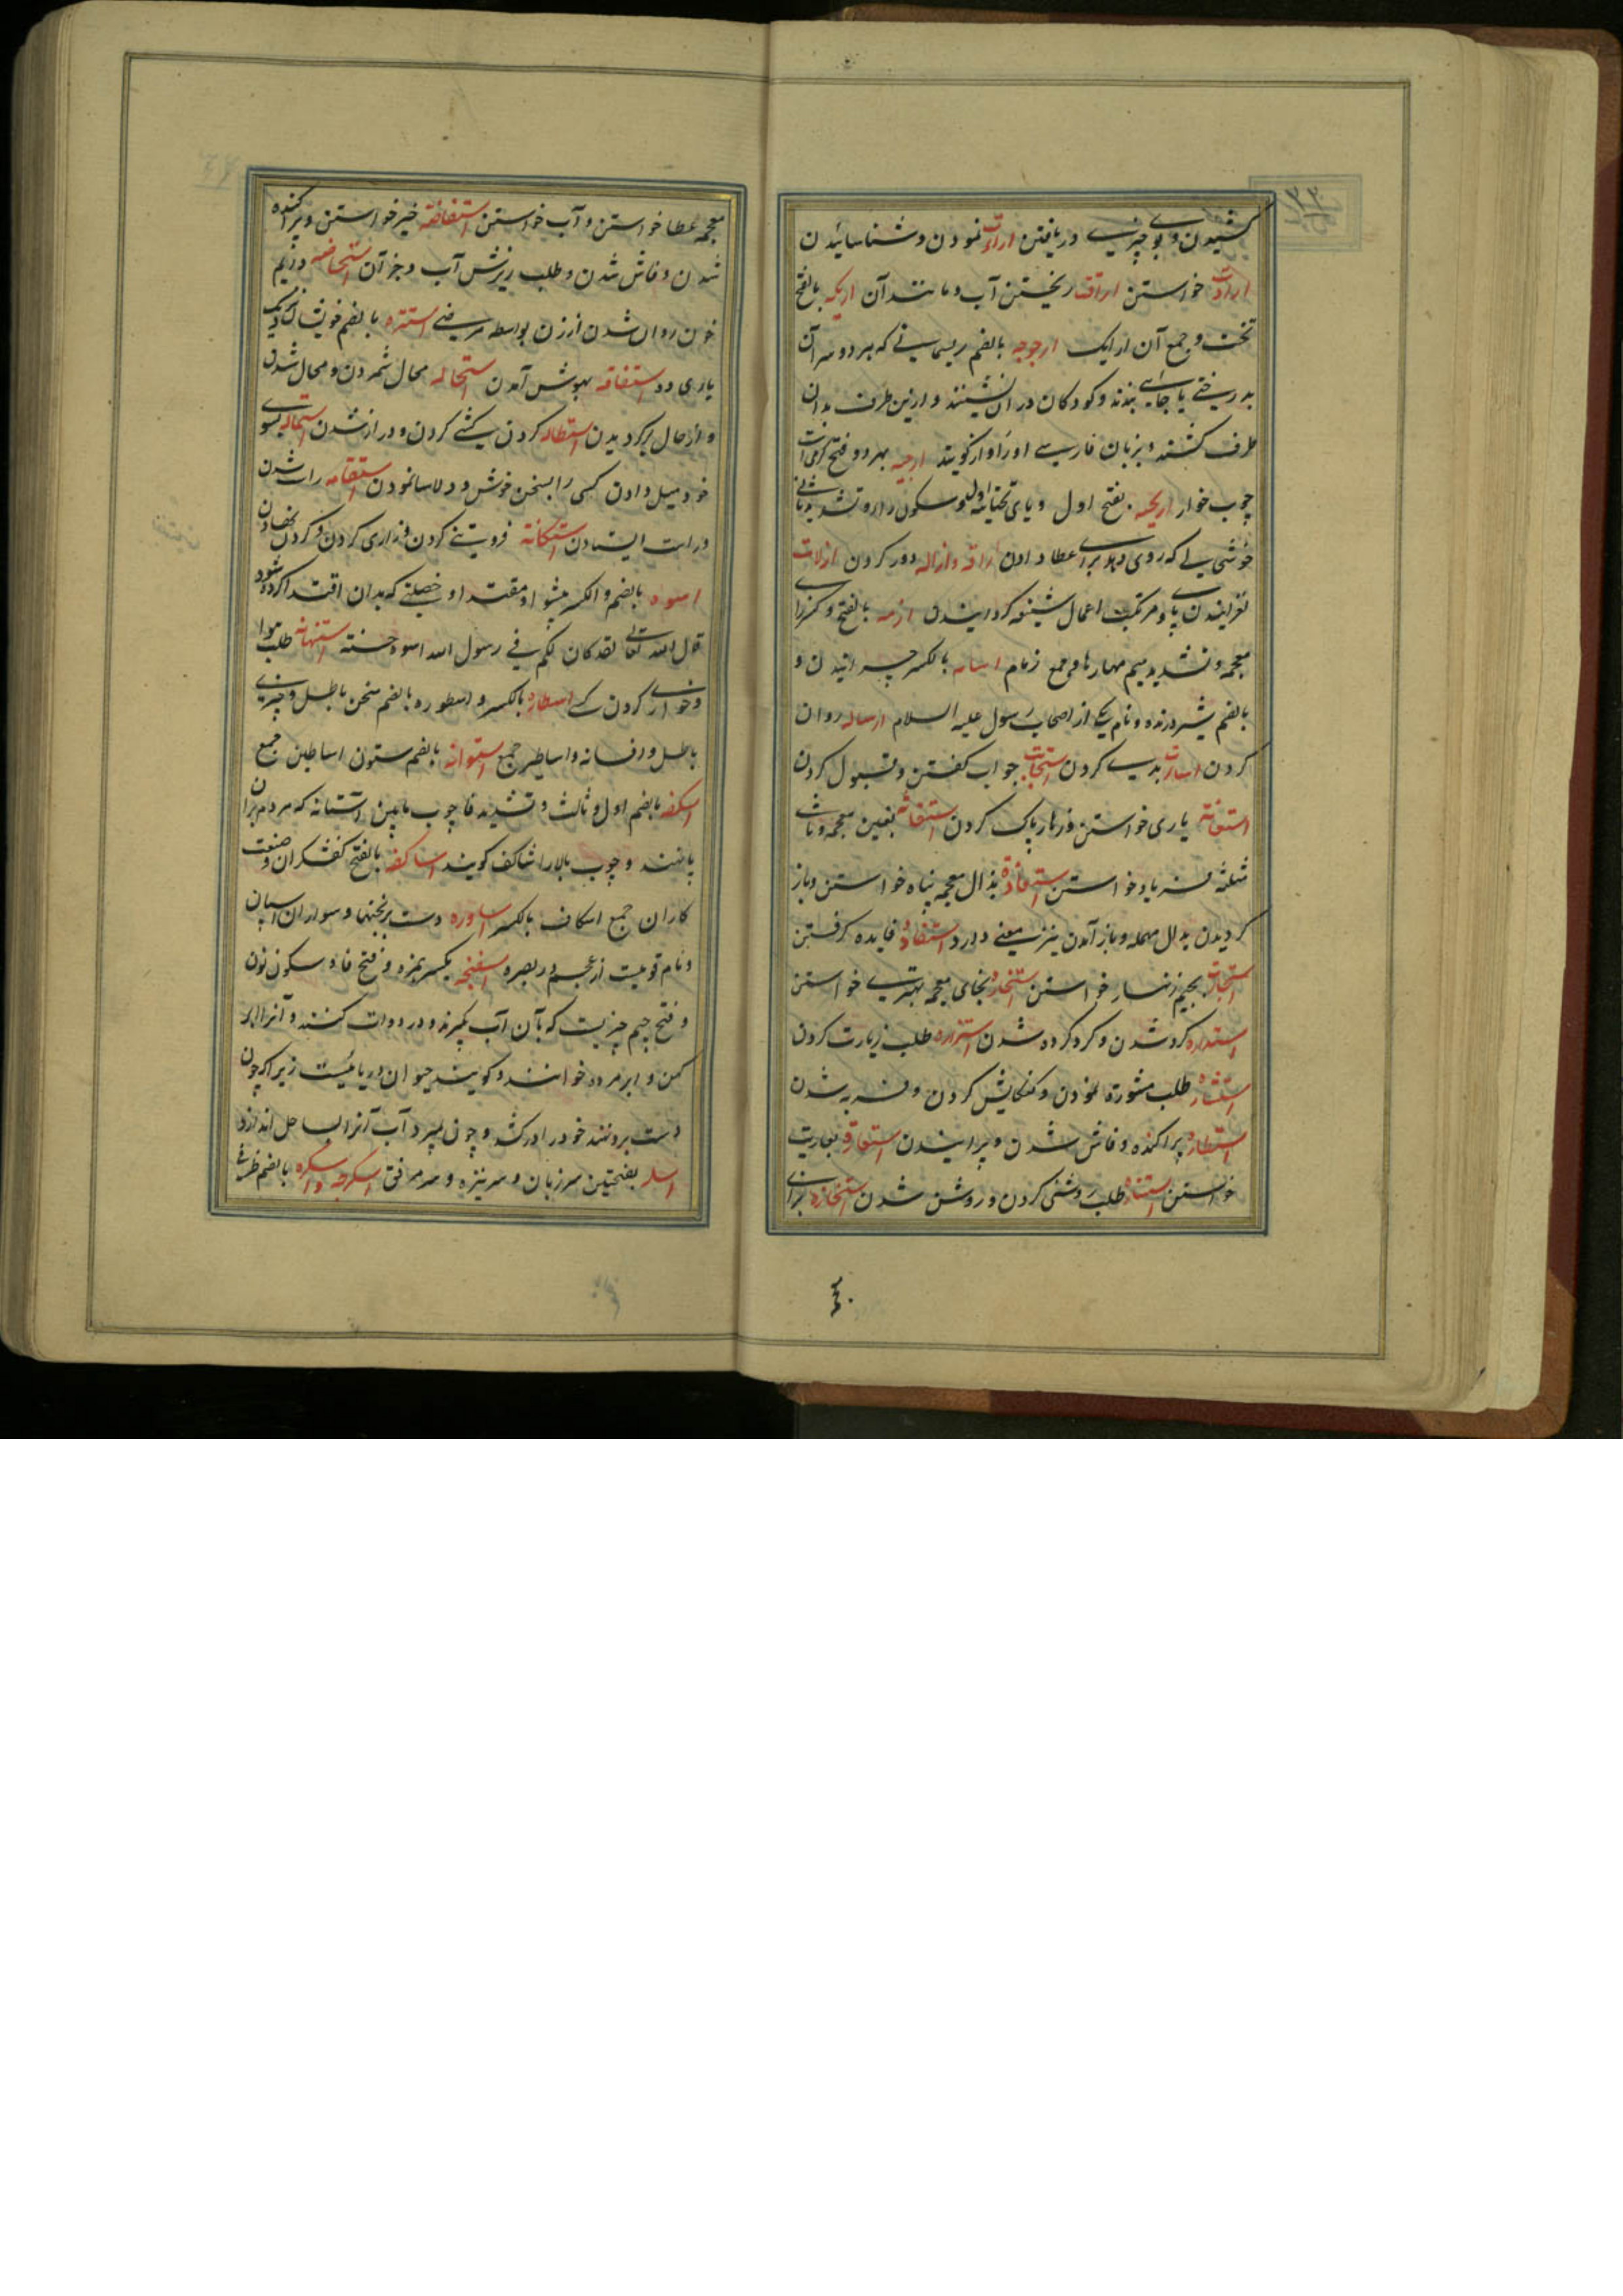 کشیدن و بوی چیزی دریافتن اراءت نمودن و شناسائیدن
ارادت خواستن اراقت ریختن آب و مانند آن اریکه بالفتح
تخت و جمع آن ارایک ارجوجه بالضم ریسمانی که هر دو سر آن
بدرختی یا جائی بندند و کودکان در آن نشینند و ازین طرف بدان
طرف کشند و بزبان فارسی او را کویند ارجیه بهر دو فتح
چوب خوار اریحیه بفتح اول و یای تحتانیه و سکون را و تشدید
خوشی که روی دهد برای عطا دادن اراقه و ازاله دور کردن ازلات
لغزانیدن پای و مرتکب اعمال شنیعه کردانیدن ازمه بالفتح و کسر زای
معجمه و تشدید میم مهارها و جمع زمام اسامه بالکسر چرانیدن و
بالضم شیر درنده و نام یکی از اصحاب رسول علیه السلام ارساله روان
کردن اساءت بدی کردن استجابت جواب کفتن و قبول کردن
استعانة یاری خواستن و زهار پاک کردن استغاثه بغین معجمه و ثای
مثلثه فریاد خواستن استعاذة بذال معجمه پناه خواستن و باز
کردیدن بدال مهمله و باز آمدن نیز معنی دارد استفاده فایده کرفتن
استجارة بجیم زنهار خواستن استخاره بخای معجمه بهتری خواستن
استداره کرد شدن و کرد کرده شدن استزاره طلب زیارت کردن
استشاره طلب مشورة نمودن و کنکایش کردن و فربه شدن
استطاره پراکنده و فاش شدن و پرانیدن استعارة بعاریت
خواستن استناره طلب روشنی کردن و روشن شدن استخازه بزای
معجمه عطا خواستن و آب خواستن استفاضه خبر خواستن و پراکنده
شدن و فاش شدن و طلب ریزش آب و جز آن استحاضه دایم
خون روان شدن از زن بواسطه مرضی استره بالضم خویشان نزدیک
یاری ده استفاقه بهوش آمدن استحاله محال شمردن و محال شدن
و از حال برکردیدن استطاله کردن کشی کردن و دراز شدن استماله بسوی
خود میل دادن کسی را بسخن خوش و دلاسا نمودن استقامه راست شدن
و راست ایستادن استکانة فروتنی کردن و زاری کردن و کردن نهادن
اسوه بالضم و الکسر پیشوا و مقتدا و خصلتی که بدان اقتدا کرده شود
قال الله تعالی لقد کان لکم فی رسول الله اسوة حسنة استهانة طلب
و خواری کردن اسطاره بالکسر و اسطوره بالضم سخن باطل و چیزی
باطل و افسانه و اساطیر جمع استوانه بالضم ستون اساطین جمع
اسکفه بالضم اول و ثالث و تشدید فا چوب پایین آستانه که مردم بر آن
پا نهند و چوب بالا را شاکف کویند اساکفه بالفتح کفشکران و صنعت
کاران جمع اسکاف بالکسر اساوره دست برنجنها و سواران اسپان
و نام قومیست از عجم در بصره اسفنجه بکسر همزه و فتح فا و سکون نون
و فتح جیم چیزیست که بآن آب کیرند و در دوات کنند و آنرا ابر
کهن و ابر مرده خوانند و کویند حیوان دریائیست زیرا که چون
دست برو نهند خود را درکشد و چون بمیرد آب آنرا بساحل اندازد
اسله بفتحتین سر زبان و سر نیزه و سر مرافق اسکرجه و اسکره بالضم ظرفی